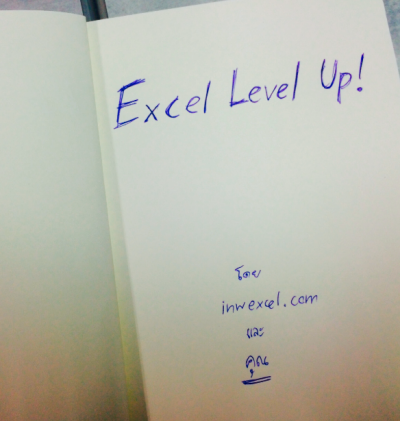 Excel Level Up!
โดย
inwexcel.com
และ
คุณ